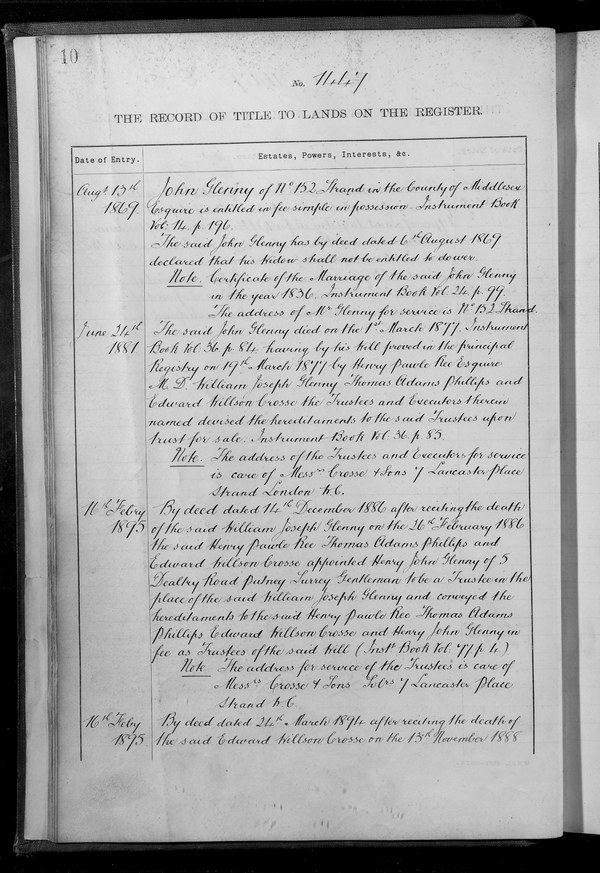 10
No. 1447
THE RECORD OF TITLE TO LANDS ON THE REGISTER.
Date of Entry.
Estates, Powers, Interests, &c.
Augt 13th
1869
John Glenny of No 152 Strand in the County of Middlesex
Esquire is entitled in fee simple in possession. Instrument Book
Vol. 14. p. 196.
The said John Glenny has by deed dated 6th August 1869
declared that his Widow shall not be entitled to dower.
Note. Certificate of the Marriage of the said John Glenny
in the year 1836. Instrument Book Vol. 24. p. 99.
The address of Mr Glenny for service is No 152 Strand.
June 24th
1881
The said John Glenny died on the 1st March 1877. Instrument
Book Vol. 36. p. 84. having by his Will proved in the principal
Registry on 19th March 1877 by Henry Pawle Ree Esquire
M. D. William Joseph Glenny Thomas Adams Phillips and
Edward Willson Crosse the Trustees and Executors therein
named devised the hereditaments to the said Trustees upon
trust for sale. Instrument Book Vol. 36. p. 85.
Note. The address of the Trustees and Executors for service
is care of Messrs Crosse & Sons 7 Lancaster Place
Strand London W.C.
16th Febry
1895
By deed dated 14th December 1886 after reciting the death
of the said William Joseph Glenny on the 26th February 1886
the said Henry Pawle Ree Thomas Adams Phillips and
Edward Willson Crosse appointed Henry John Glenny of 5
Dealtry Road Putney Surrey Gentleman to be a Trustee in the
place of the said William Joseph Glenny and conveyed the
hereditaments to the said Henry Pawle Ree Thomas Adams
Phillips Edward Willson Crosse and Henry John Glenny in
fee as Trustees of the said Will (Inst. Book Vol. 77 p. 4.)
Note. The address for service of the Trustees is care of
Messrs Crosse & Sons Solrs 7 Lancaster Place
Strand W.C.
16th Feby
1895
By deed dated 24th March 1894 after reciting the death of
the said Edward Willson Crosse on the 13th November 1888